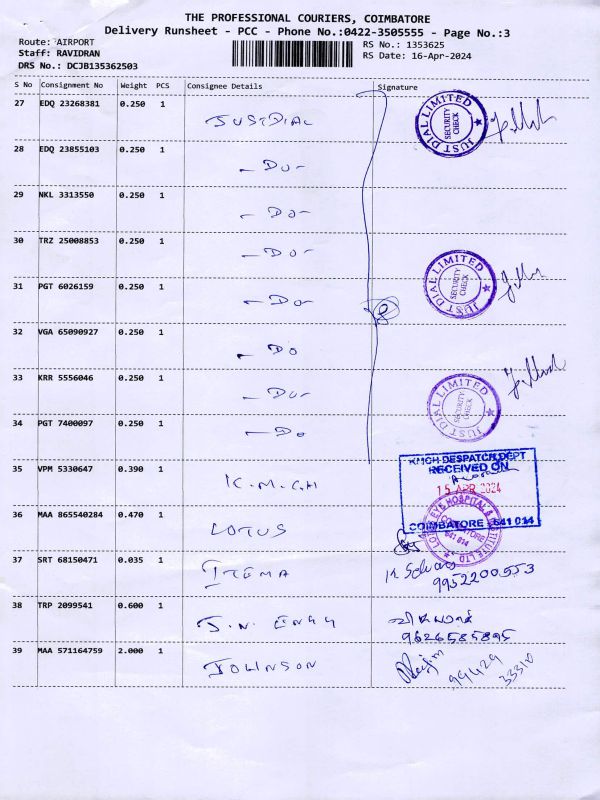 THE PROFESSIONAL COURIERS, COIMBATORE
Delivery Runsheet - PCC - Phone No.:0422-3505555 - Page No.:3
Route: AIRPORT
RS No.: 1353625
Staff: RAVIDRAN
RS Date: 16-Apr-2024
DRS No.: DCJB135362503
S No Consignment No Weight PCS Consignee Details Signature
27 EDQ 23268381 0.250 1 JUSTDIAL
JUST DIAL LIMITED SECURITY CHECK
28 EDQ 23855103 0.250 1 - Do -
29 NKL 3313550 0.250 1 - Do -
30 TRZ 25008853 0.250 1 - Do -
JUST DIAL LIMITED SECURITY CHECK
31 PGT 6026159 0.250 1 - Do -
32 VGA 65090927 0.250 1 - Do
33 KRR 5556046 0.250 1 - Do -
JUST DIAL LIMITED SECURITY CHECK
34 PGT 7400097 0.250 1 - Do
KMCH DESPATCH DEPT
RECEIVED ON
35 VPM 5330647 0.390 1 K.M.C.H
15 APR 2024
36 MAA 865540284 0.470 1 LOTUS
COIMBATORE - 641 014
LOTUS EYE HOSPITAL & INSTITUTE LTD
COIMBATORE
641 014
37 SRT 68150471 0.035 1 ITEMA
9952200553
38 TRP 2099541 0.600 1 J.N. ENGG
9626585895
39 MAA 571164759 2.000 1 JOLINSON
99429
33310